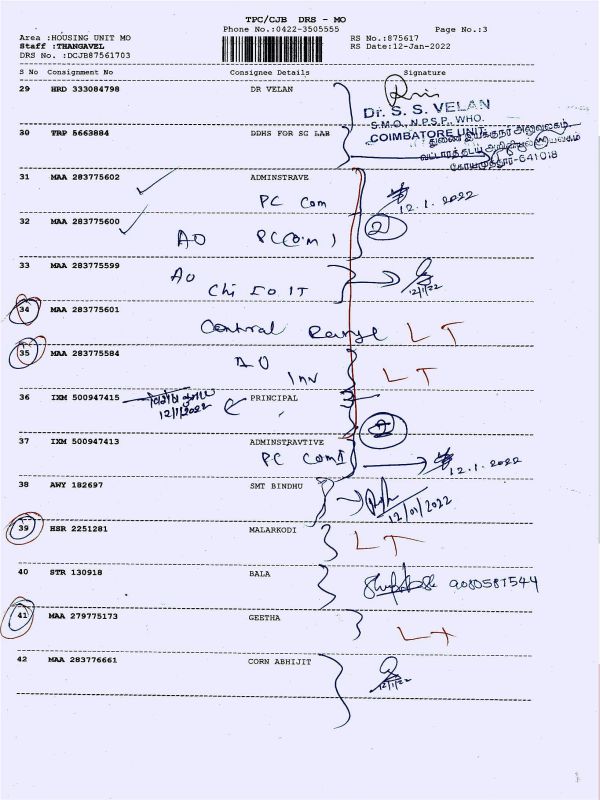 TPC/CJB DRS - MO
Phone No.:0422-3505555 Page No.:3
Area :HOUSING UNIT MO RS No.:875617
Staff :THANGAVEL RS Date:12-Jan-2022
DRS No. :DCJB87561703
S No Consignment No Consignee Details Signature
29 HRD 333084798 DR VELAN
Dr. S. S. VELAN
S.M.O., N.P.S.P., WHO.
COIMBATORE UNIT
30 TRP 5663884 DDHS FOR SG LAB
துணை இயக்குநர் அலுவலகம்
கோயமுத்தூர்-641018
31 MAA 283775602 ADMINSTRAVE
PC Com 12.1.2022
32 MAA 283775600 2
AO PC(Om)
33 MAA 283775599 AO
Chi I O IT 12/1/22
34 MAA 283775601
Central Range LT
35 MAA 283775584 AO
Inv LT
36 IXM 500947415 12/1/2022 PRINCIPAL
37 IXM 500947413 ADMINSTRAVTIVE
PC ComI 12.1.2022
38 AWY 182697 SMT BINDHU
12/01/2022
39 HSR 2251281 MALARKODI LT
40 STR 130918 BALA 9080587544
41 MAA 279775173 GEETHA LT
42 MAA 283776661 CORN ABHIJIT
12/1/22